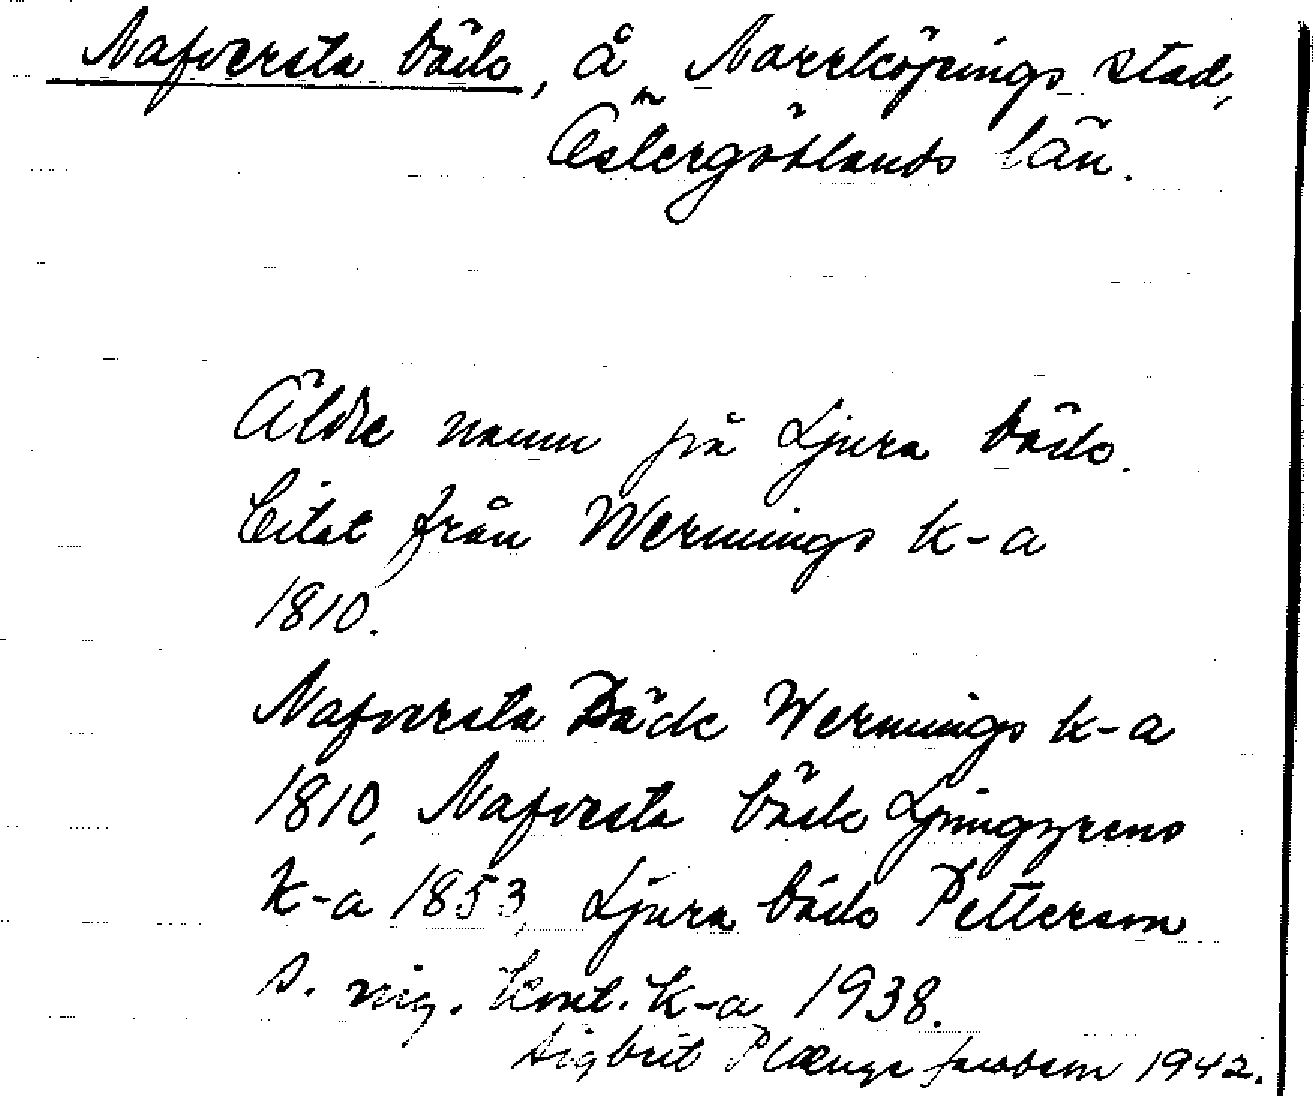 Nafversta bäck, å Norrköpings stad,
Östergötlands län.
Äldre namn på Ljura bäck.
Citat från Wernings k-a
1810.
Nafversta Bäck Wernings k-a
1810, Nafvesta bäck Ljunggrens
k-a 1853, Ljura bäck Petterson
s. k-a 1938.
Sigbrit Plænge Jacobson 1942.